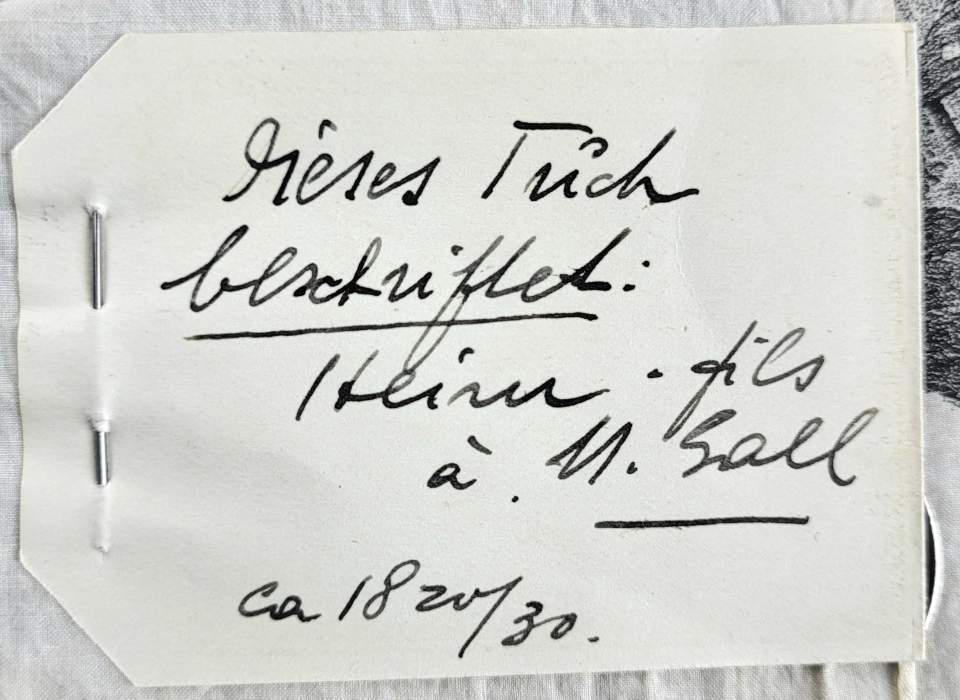 dieses Tuch
beschriftet:
Heim · fils
à . St. Gall
ca 1820/30.